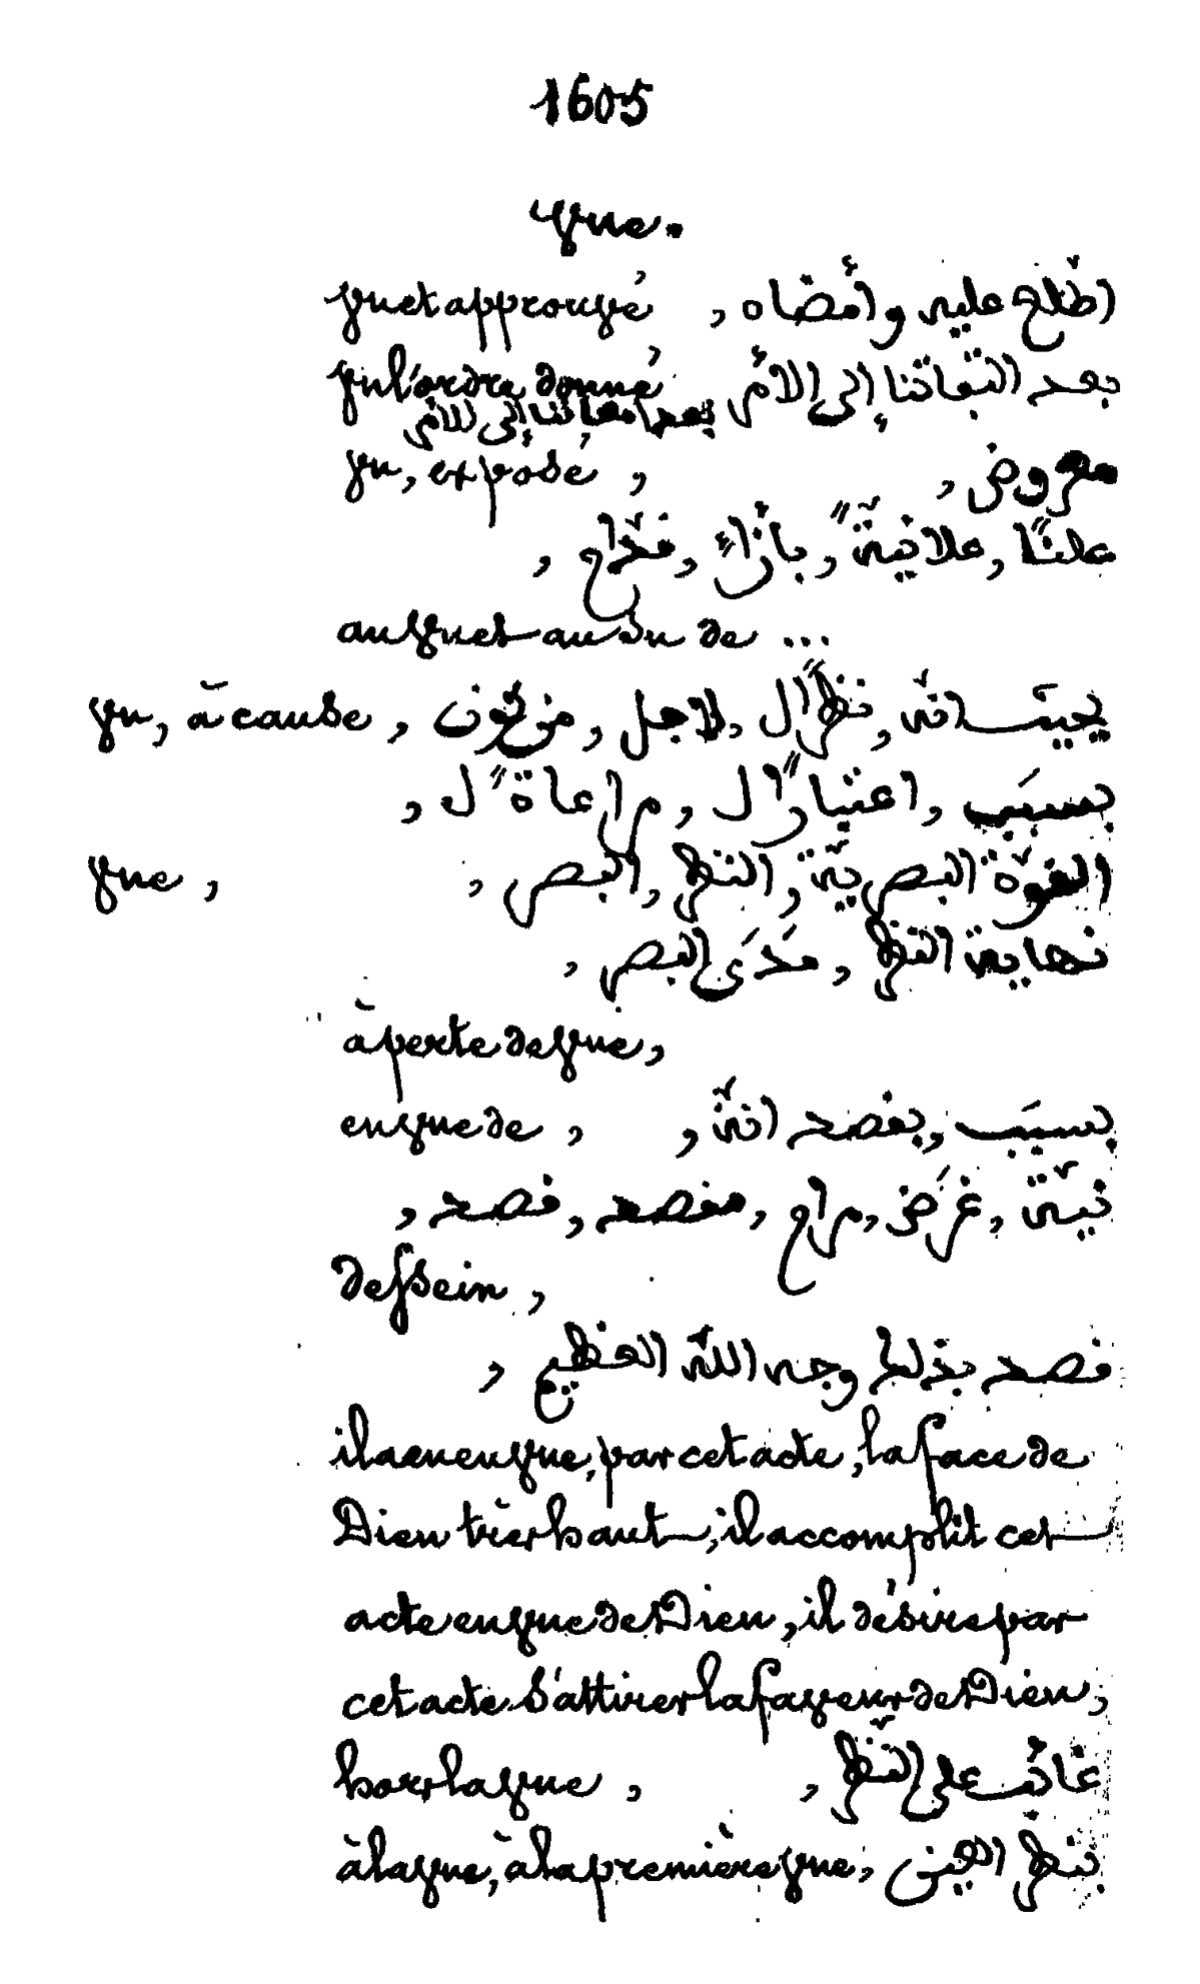 1605
vue.
vu et approuvé, اطّلع عليه وأمضاه
vu l'ordre donné, بعد التفاتنا إلى الأمر
إلى الأمر
vu, exposé, معروض,
علنًا, علانيةً, بأزاء, قدّام,
au vu et au su de ...
vu, à cause, بحيث انّه, نظرًا ل, لاجل, من كون
بسبب, اعتبارًا ل, مراعاةً ل,
vue, القوّة البصريّة, النظر, البصر,
نهاية النظر, مَدَى البصر,
à perte de vue,
en vue de, بسبب, بقصد انّه,
نيّة, غرَض, مرام, مقصد, قصد,
dessein,
قصد بذلك وجه اللّه العظيم,
il a eu en vue, par cet acte, la face de
Dieu très haut; il accomplit cet
acte en vue de Dieu, il désire par
cet acte s'attirer la faveur de Dieu,
hors la vue, غائب على النّظر,
à la vue, à la première vue, بنظر العين